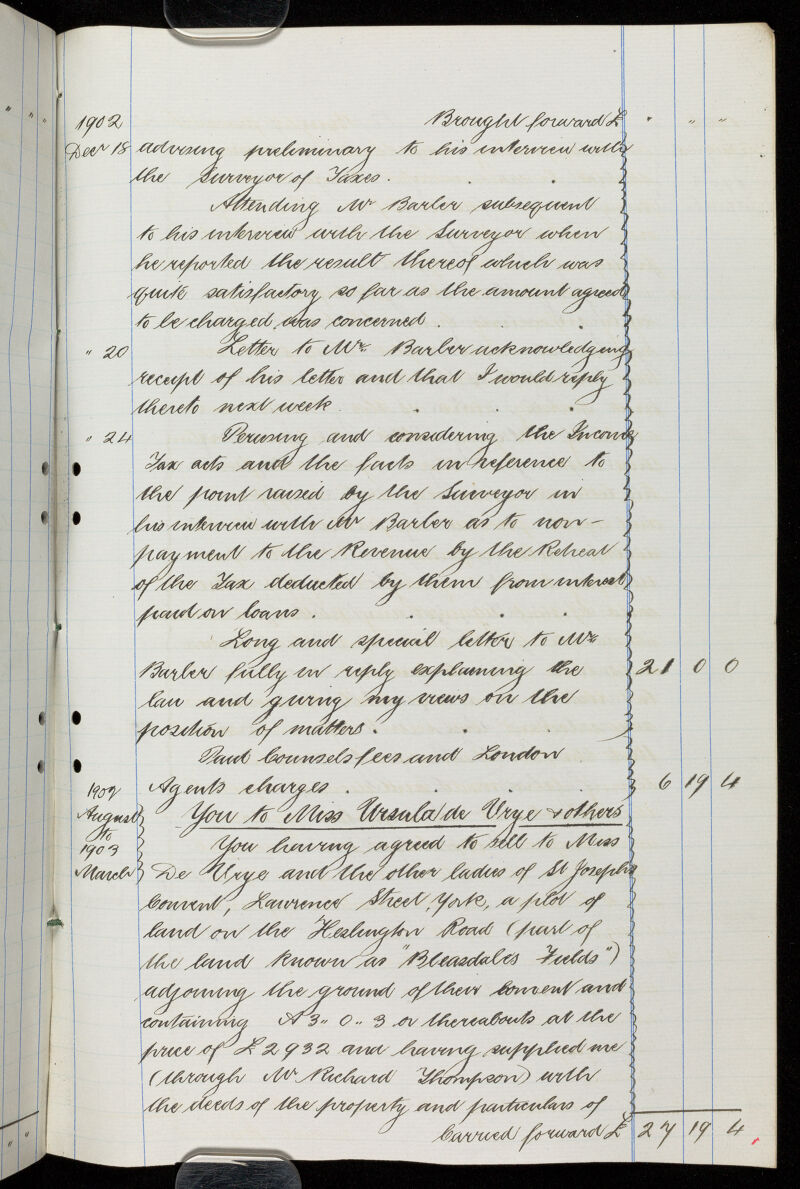 1902 Brought forward £ " " "
Decr 18 advising preliminary to his interview with
the Surveyor of Taxes .
Attending Mr Barber subsequent
to his interview with the Surveyor when
he reported the result thereof which was
quite satisfactory so far as the amount agreed
to be charged was concerned .
" 20 Letter to Mr. Barber acknowledging
receipt of his letter and that I would reply
thereto next week
" 24 Perusing and considering the Income
Tax acts and the facts in reference to
the point raised by the Surveyor in
his interview with Mr Barber as to non-
payment to the Revenue by the Retreat
of the Tax deducted by them from interest
paid on loans .
Long and special letter to Mr.
Barber fully in reply explaining the 21 0 0
law and giving my views on the
position of matters .
Paid Counsels fees and London
Agents charges . 6 19 4
1902 August to 1903 March
You to Miss Ursula de Vrye & others
You having agreed to sell to Miss
De Vrye and the other ladies of St Josephs
Convent, Lawrence Street, York, a plot of
land on the Heslington Road (part of
the land known as "Bleasdales Fields")
adjoining the ground of their convent and
containing A3.. 0.. 3 or thereabouts at the
price of £2932 and having supplied me
(through Mr Richard Thompson) with
the deeds of the property and particulars of
Carried forward £ 27 19 4